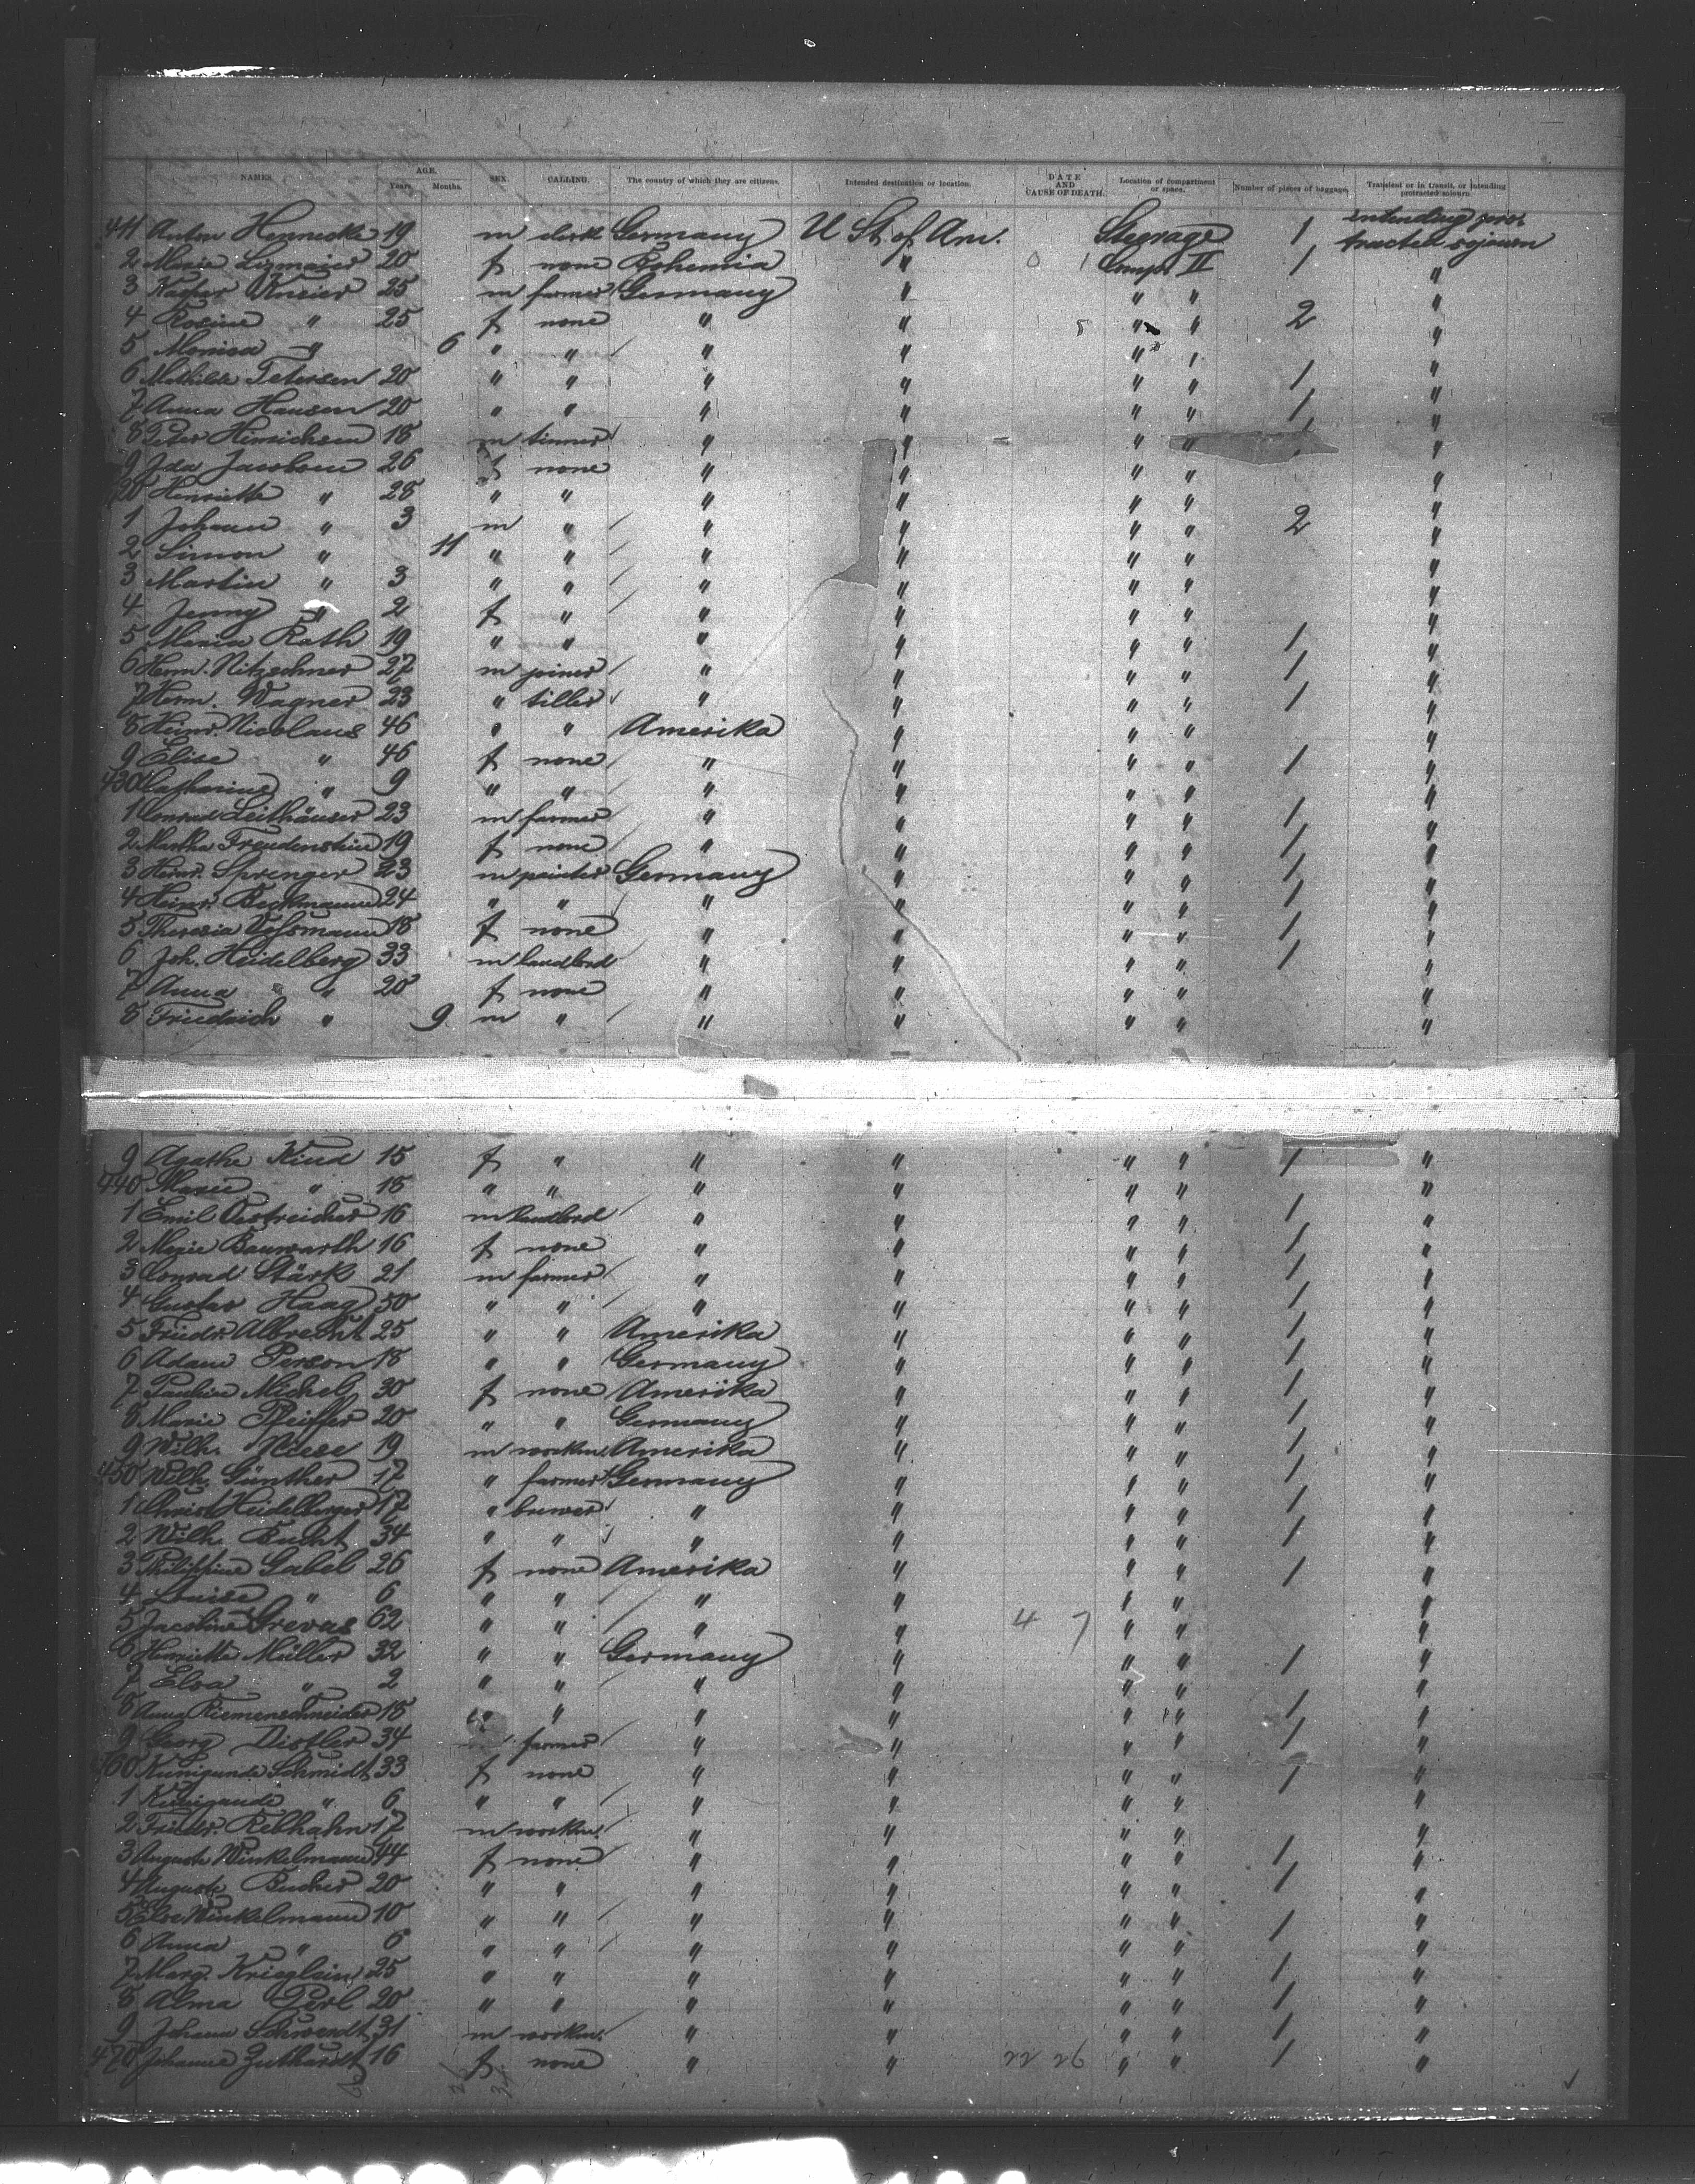 NAMES. AGE. Years. Months. SEX. CALLING. The country of which they are citizens. Intended destination or location. DATE AND CAUSE OF DEATH. Location of compartment or space. Number of pieces of baggage. Transient or in transit, or intending protracted sojourn.
411 Anton Hennecke 19 m clerk Germany U St. of Am. Steerage 1 intending pro-tracted sojourn
2 Marie 20 f none Bohemia " 0 1 Comp. II 1 "
3 Kaspar Kneier 25 m farmer Germany " " " "
4 Rosine " 25 f none " " 5 " " 2 "
5 Monica " 6 " " " " " " "
6 Mathilde Petersen 20 " " " " " " 1 "
7 Anna Hansen 20 " " " " " " 1 "
8 Peter Hinrichsen 18 m tinner " " " " "
9 Ida Jacobsen 26 f none " " " " "
420 Henriette " 28 " " " " " " "
1 Johann " 3 m " " " " " 2 "
2 Simon " 11 " " " " " " "
3 Martin " 3 " " " " " " "
4 Jenny " 2 f " " " " " "
5 Maria Rath 19 " " " " " " 1 "
6 Herm. Nitzschner 27 m joiner " " " " 1 "
7 Herm. Wagner 23 " tiller " " " " 1 "
8 Heinr. Nicolaus 46 " " Amerika " " " "
9 Elise " 46 f none " " " " 1 "
430 Catharina " 9 " " " " " " "
1 Conrad Leithäuser 23 m farmer " " " " 1 "
2 Martha Freudenstein 19 f none " " " " 1 "
3 Heinr. Sprenger 23 m painter Germany " " " 1 "
4 Heinr. Beckmann 24 " " " " " " 1 "
5 Theresia Voßmann 18 f none " " " " 1 "
6 Joh. Heidelberg 33 m landlord " " " " 1 "
7 Anna " 20 f none " " " " "
8 Friedrich " 9 m " " " " " "
9 Agathe Kind 15 f " " " " " 1 "
440 Marie " 18 " " " " " " "
1 Emil Oestreicher 16 m landlord " " " " 1 "
2 Marie Bauwarth 16 f none " " " " 1 "
3 Conrad Stärk 21 m farmer " " " " 1 "
4 Gustav Haag 50 " " " " " " 1 "
5 Friedr. Albrecht 25 " " Amerika " " " 1 "
6 Adam Person 18 " " Germany " " " 1 "
7 Pauline Michel 30 f none Amerika " " " 1 "
8 Marie Pfeiffer 20 " " Germany " " " 1 "
9 Wilh. Niese 19 m workm. Amerika " " " 1 "
450 Wilh. Günther 17 " farmer Germany " " " 1 "
1 Christ. Heidelberger 17 " brewer " " " " 1 "
2 Wilh. Bucht 34 " " " " " " 1 "
3 Philippine Gabel 26 f none Amerika " " " 1 "
4 Louise " 6 " " " " " " "
5 Jacobine Grevas 62 " " " " 4 7 " " "
6 Henriette Müller 32 " " Germany " " " 1 "
7 Elsa " 2 " " " " " " "
8 Anna Riemenschneider 18 " " " " " " 1 "
9 Georg Distler 34 farmer " " " " 1 "
460 Kunigunde Schmidt 33 f none " " " " 1 "
1 Kunigunde " 6 " " " " " " "
2 Friedr. Rebhahn 17 m workm. " " " " "
3 Auguste Winkelmann 44 f none " " " " 1 "
4 Auguste Bucher 20 " " " " " " 1 "
5 Else Winkelmann 10 " " " " " " 1 "
6 Anna " 6 " " " " " " "
7 Marg. Krieglein 25 " " " " " " 1 "
8 Alma Perl 20 " " " " " " 1 "
9 Johann Schwendt 31 m workm. " " " " 1 "
470 Johanne Zubhardt 16 f none " " 22 26 " " 1 "